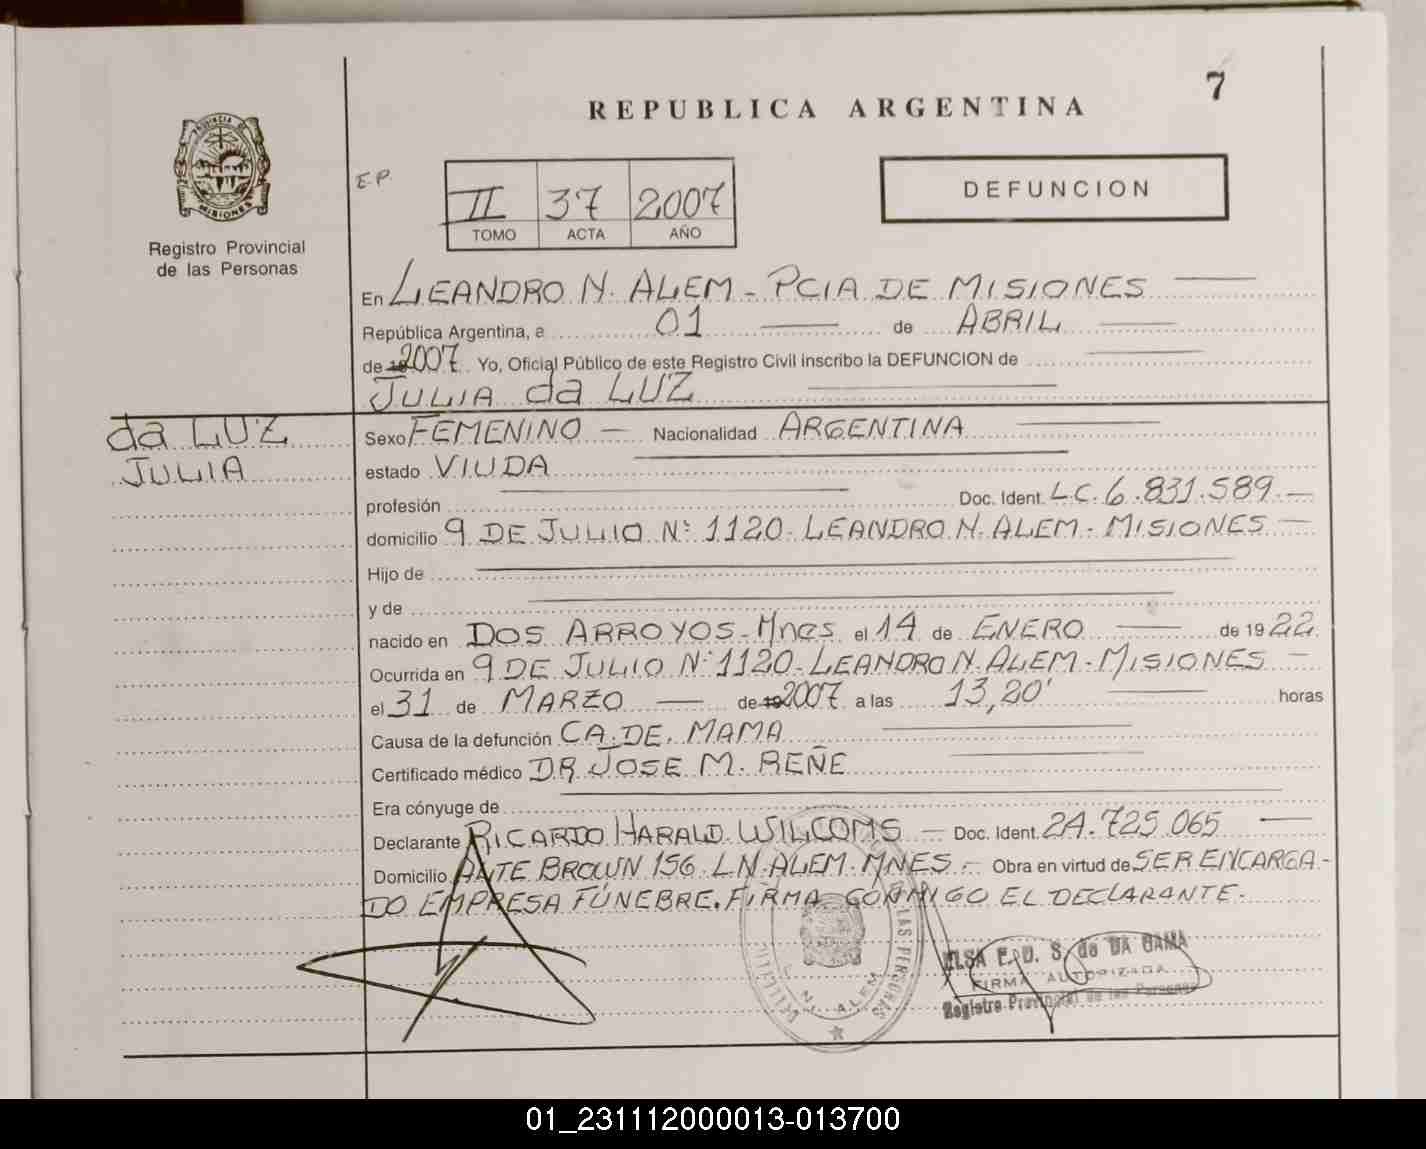 7
REPUBLICA ARGENTINA
PROVINCIA DE
MISIONES
Registro Provincial
de las Personas
E.P.
II 37 2007
TOMO ACTA AÑO
DEFUNCION
En LEANDRO N. ALEM - PCIA DE MISIONES
República Argentina, a 01 de ABRIL
de 19 2007 Yo, Oficial Público de este Registro Civil inscribo la DEFUNCION de
JULIA da LUZ
da LUZ
JULIA
Sexo FEMENINO — Nacionalidad ARGENTINA
estado VIUDA
profesión Doc. Ident. L.C. 6.831.589 —
domicilio 9 DE JULIO Nº 1120 - LEANDRO N. ALEM - MISIONES —
Hijo de
y de
nacido en DOS ARROYOS - Mnes el 14 de ENERO de 1922
Ocurrida en 9 DE JULIO Nº 1120 - LEANDRO N. ALEM - MISIONES —
el 31 de MARZO — de 19 2007 a las 13,20' horas
Causa de la defunción CA. DE. MAMA
Certificado médico DR JOSE M. REÑE
Era cónyuge de
Declarante RICARDO HARALD WILCOMS — Doc. Ident. 24.725.065 —
Domicilio ALTE BROWN 156 L.N. ALEM - MNES - Obra en virtud de SER ENCARGA-
DO EMPRESA FÚNEBRE. FIRMA CONMIGO EL DECLARANTE.
LAS PERSONAS
N. ALEM
ELSA E. D. S. de DA GAMA
FIRMA AUTORIZADA
Registro Provincial de las Personas
01_231112000013-013700